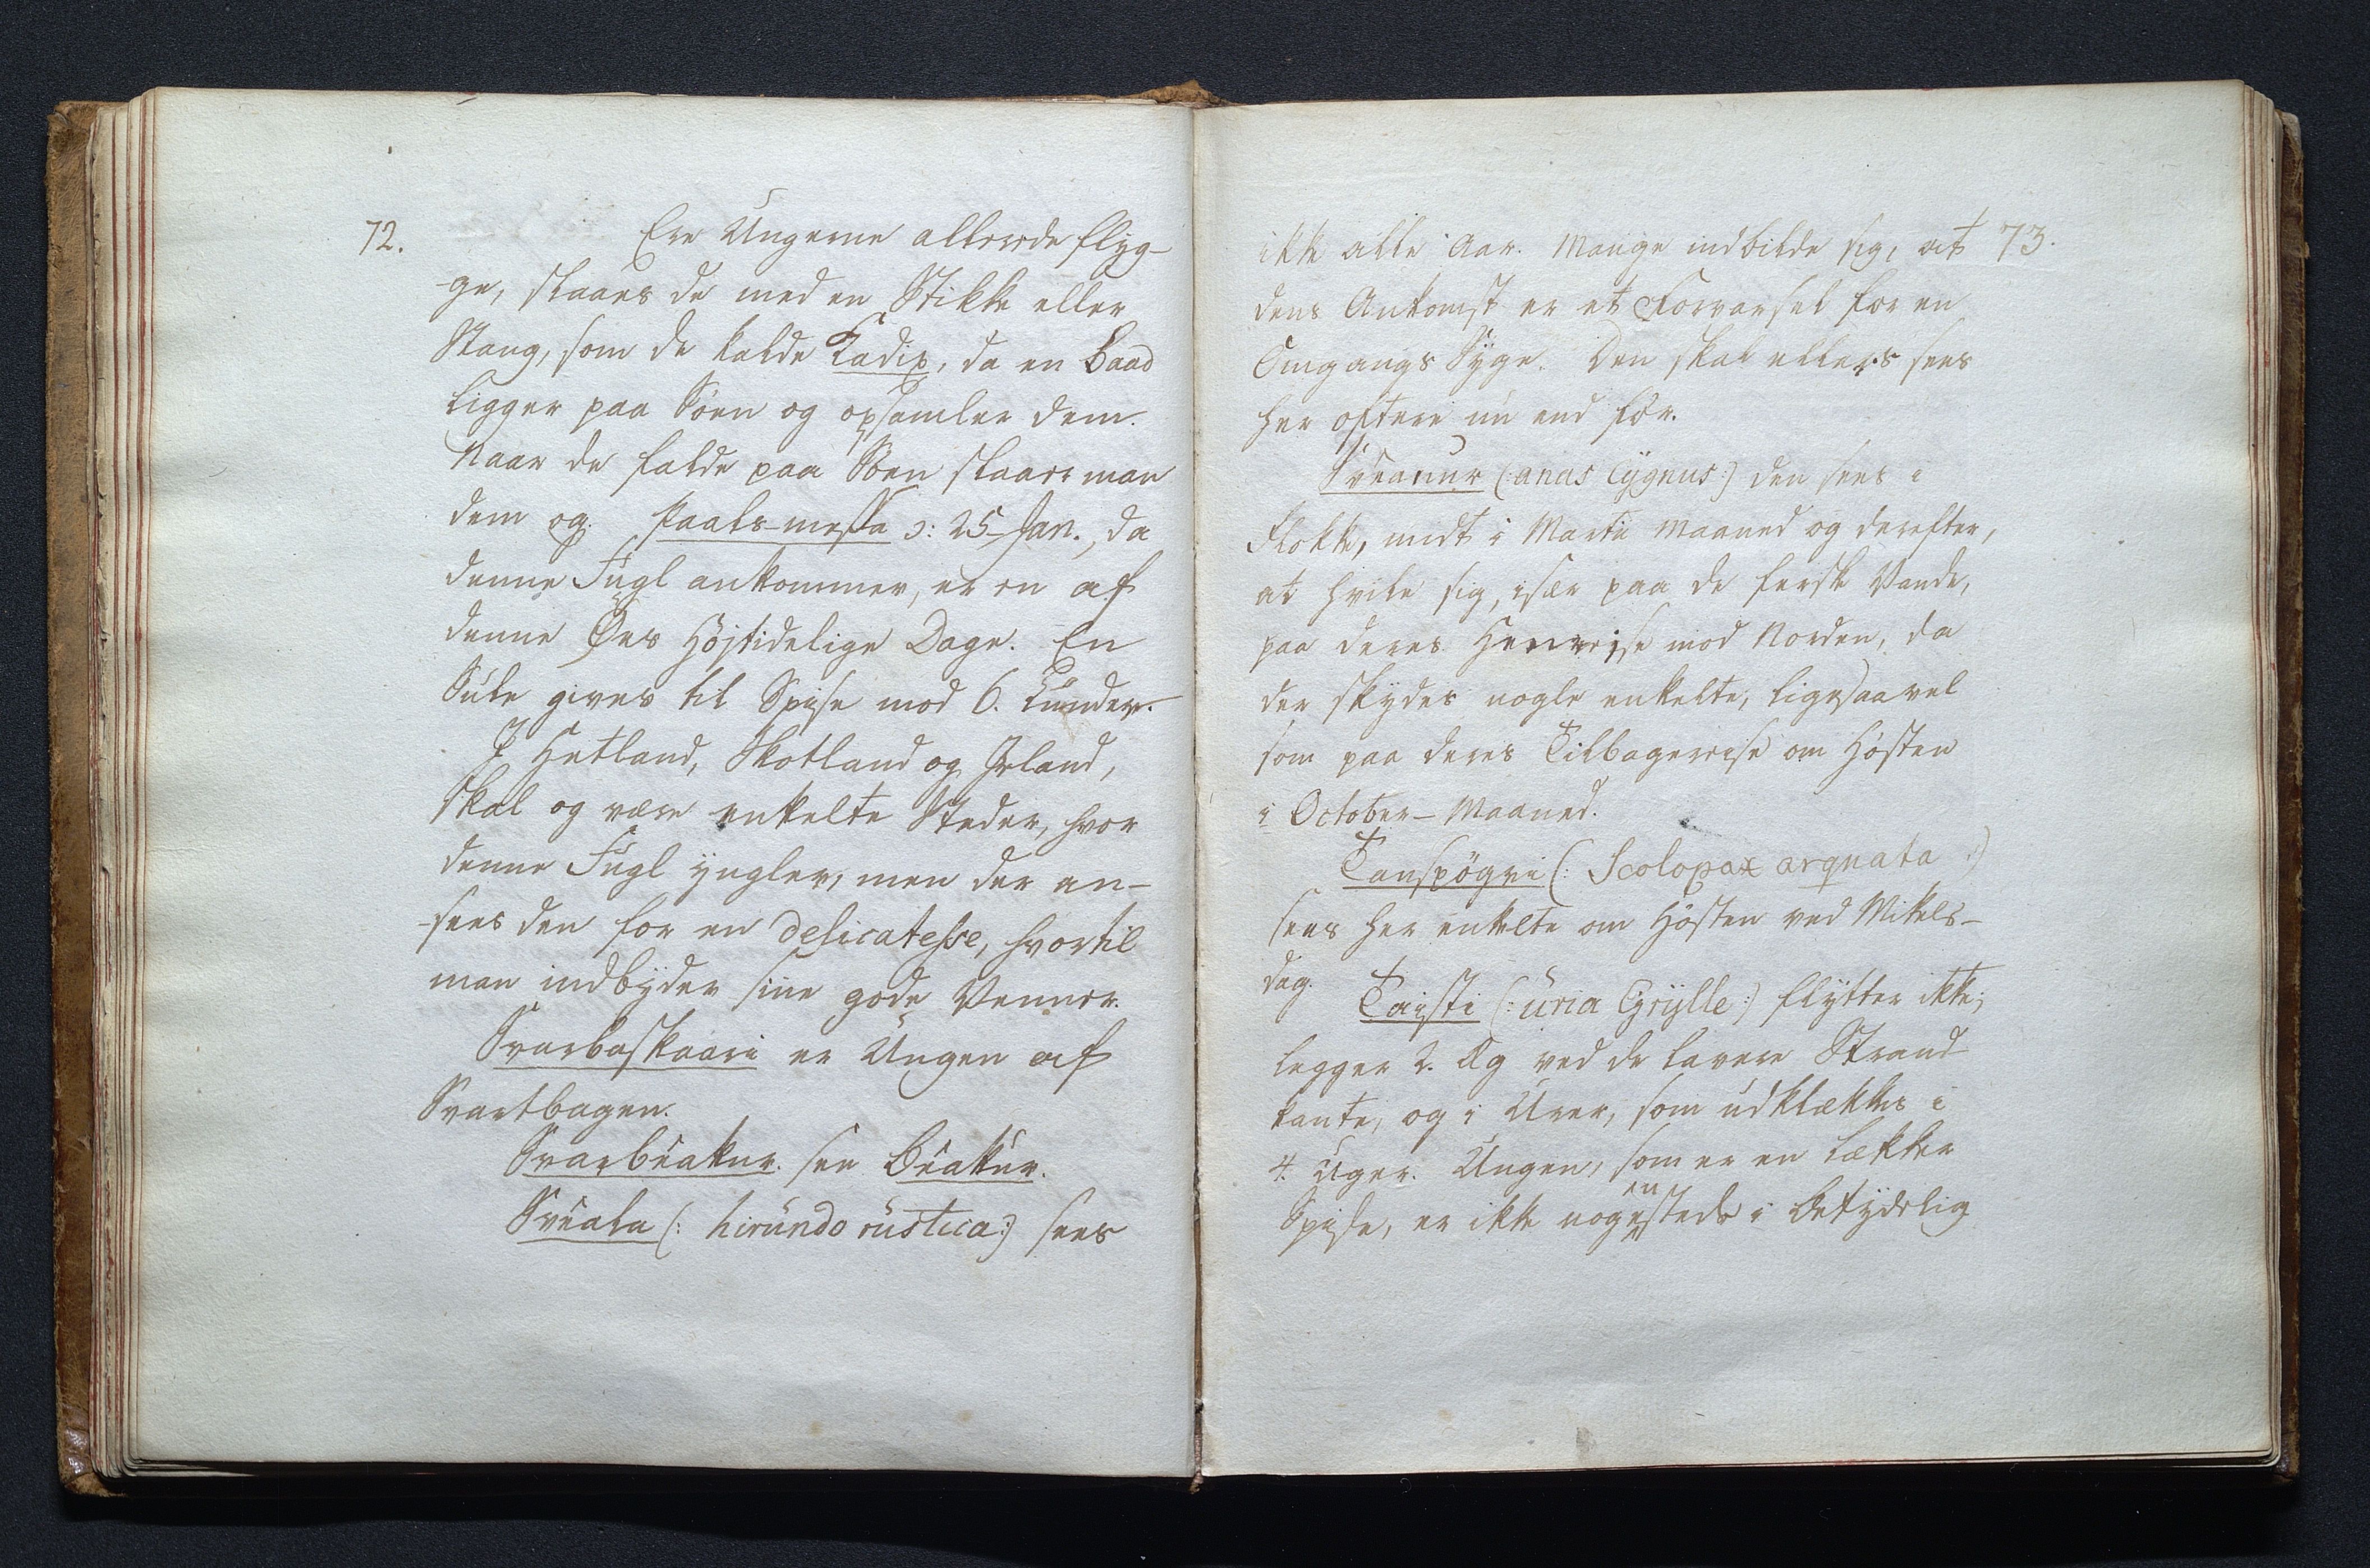 72.
Ere Ungerne allerede flyg-
-ge, slaaes de med en Stikke eller
Stang, som de kalde Kadix, da en Baad
ligger paa Söen og opsamler dem.
Naar de falde paa Söen slaaer man
dem og. Paals-messa ɔ: 25 Jan., da
denne Fugl ankommer, er en af
denne Øes Höjtidelige Dage. En
Sule gives til Spise mod 6. Lunder.
I Hetland, Skotland og Irland,
skal og være enkelte Steder, hvor
denne Fugl yngler, men der an-
-sees den for en delicatesse, hvortil
man indbyder sine gode Venner.
Svarbaskaari er Ungen af
Svartbagen.
Svarbeakur. see Beakur.
Sveala (: hirundo rustica:) sees
73.
ikke alle Aar. Mange indbilde sig, at
dens Ankomst er et Forvarsel for en
Omgangs Syge. Den skal ellers sees
her oftere nu end för.
Sveanur (: anas Cygnus:) den sees i
Flokke, midt i Martii Maaned og derefter,
at hvile sig, især paa de ferske Vande,
paa deres Henrejse mod Norden, da
der skydes nogle enkelte, ligesaavel
som paa deres Tilbagereise om Hösten
i October-Maaned.
Tanspögvi (: Scolopax arquata :)
sees her enkelte om Hösten ved Mikels-
dag.
Taisti (: uria Grylle:) flytter ikke;
legger 2. Æg ved de lavere Strand
kante, og i Urer, som udklækkes i
4. Uger. Ungen, som er en lækker
Spise, er ikke nogensteds i betydelig